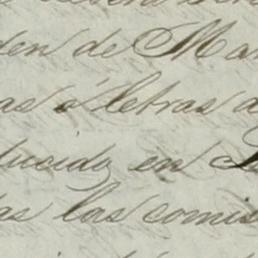 den de Ma
as ó letras a
ducido en
as las comis